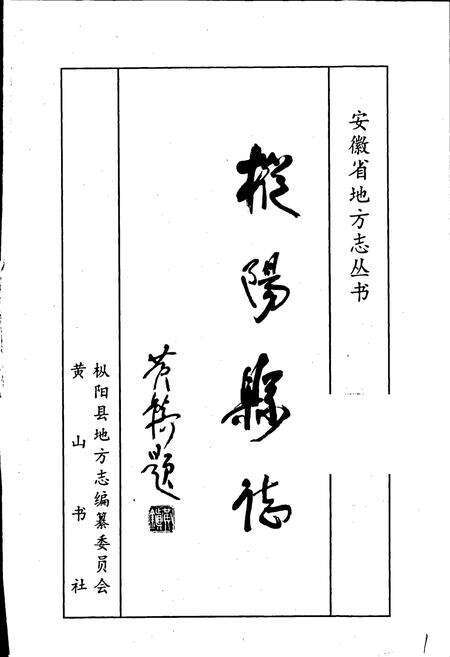 安徽省地方志丛书
樅陽縣志
黄鎮题
枞阳县地方志编纂委员会
黄山书社
1